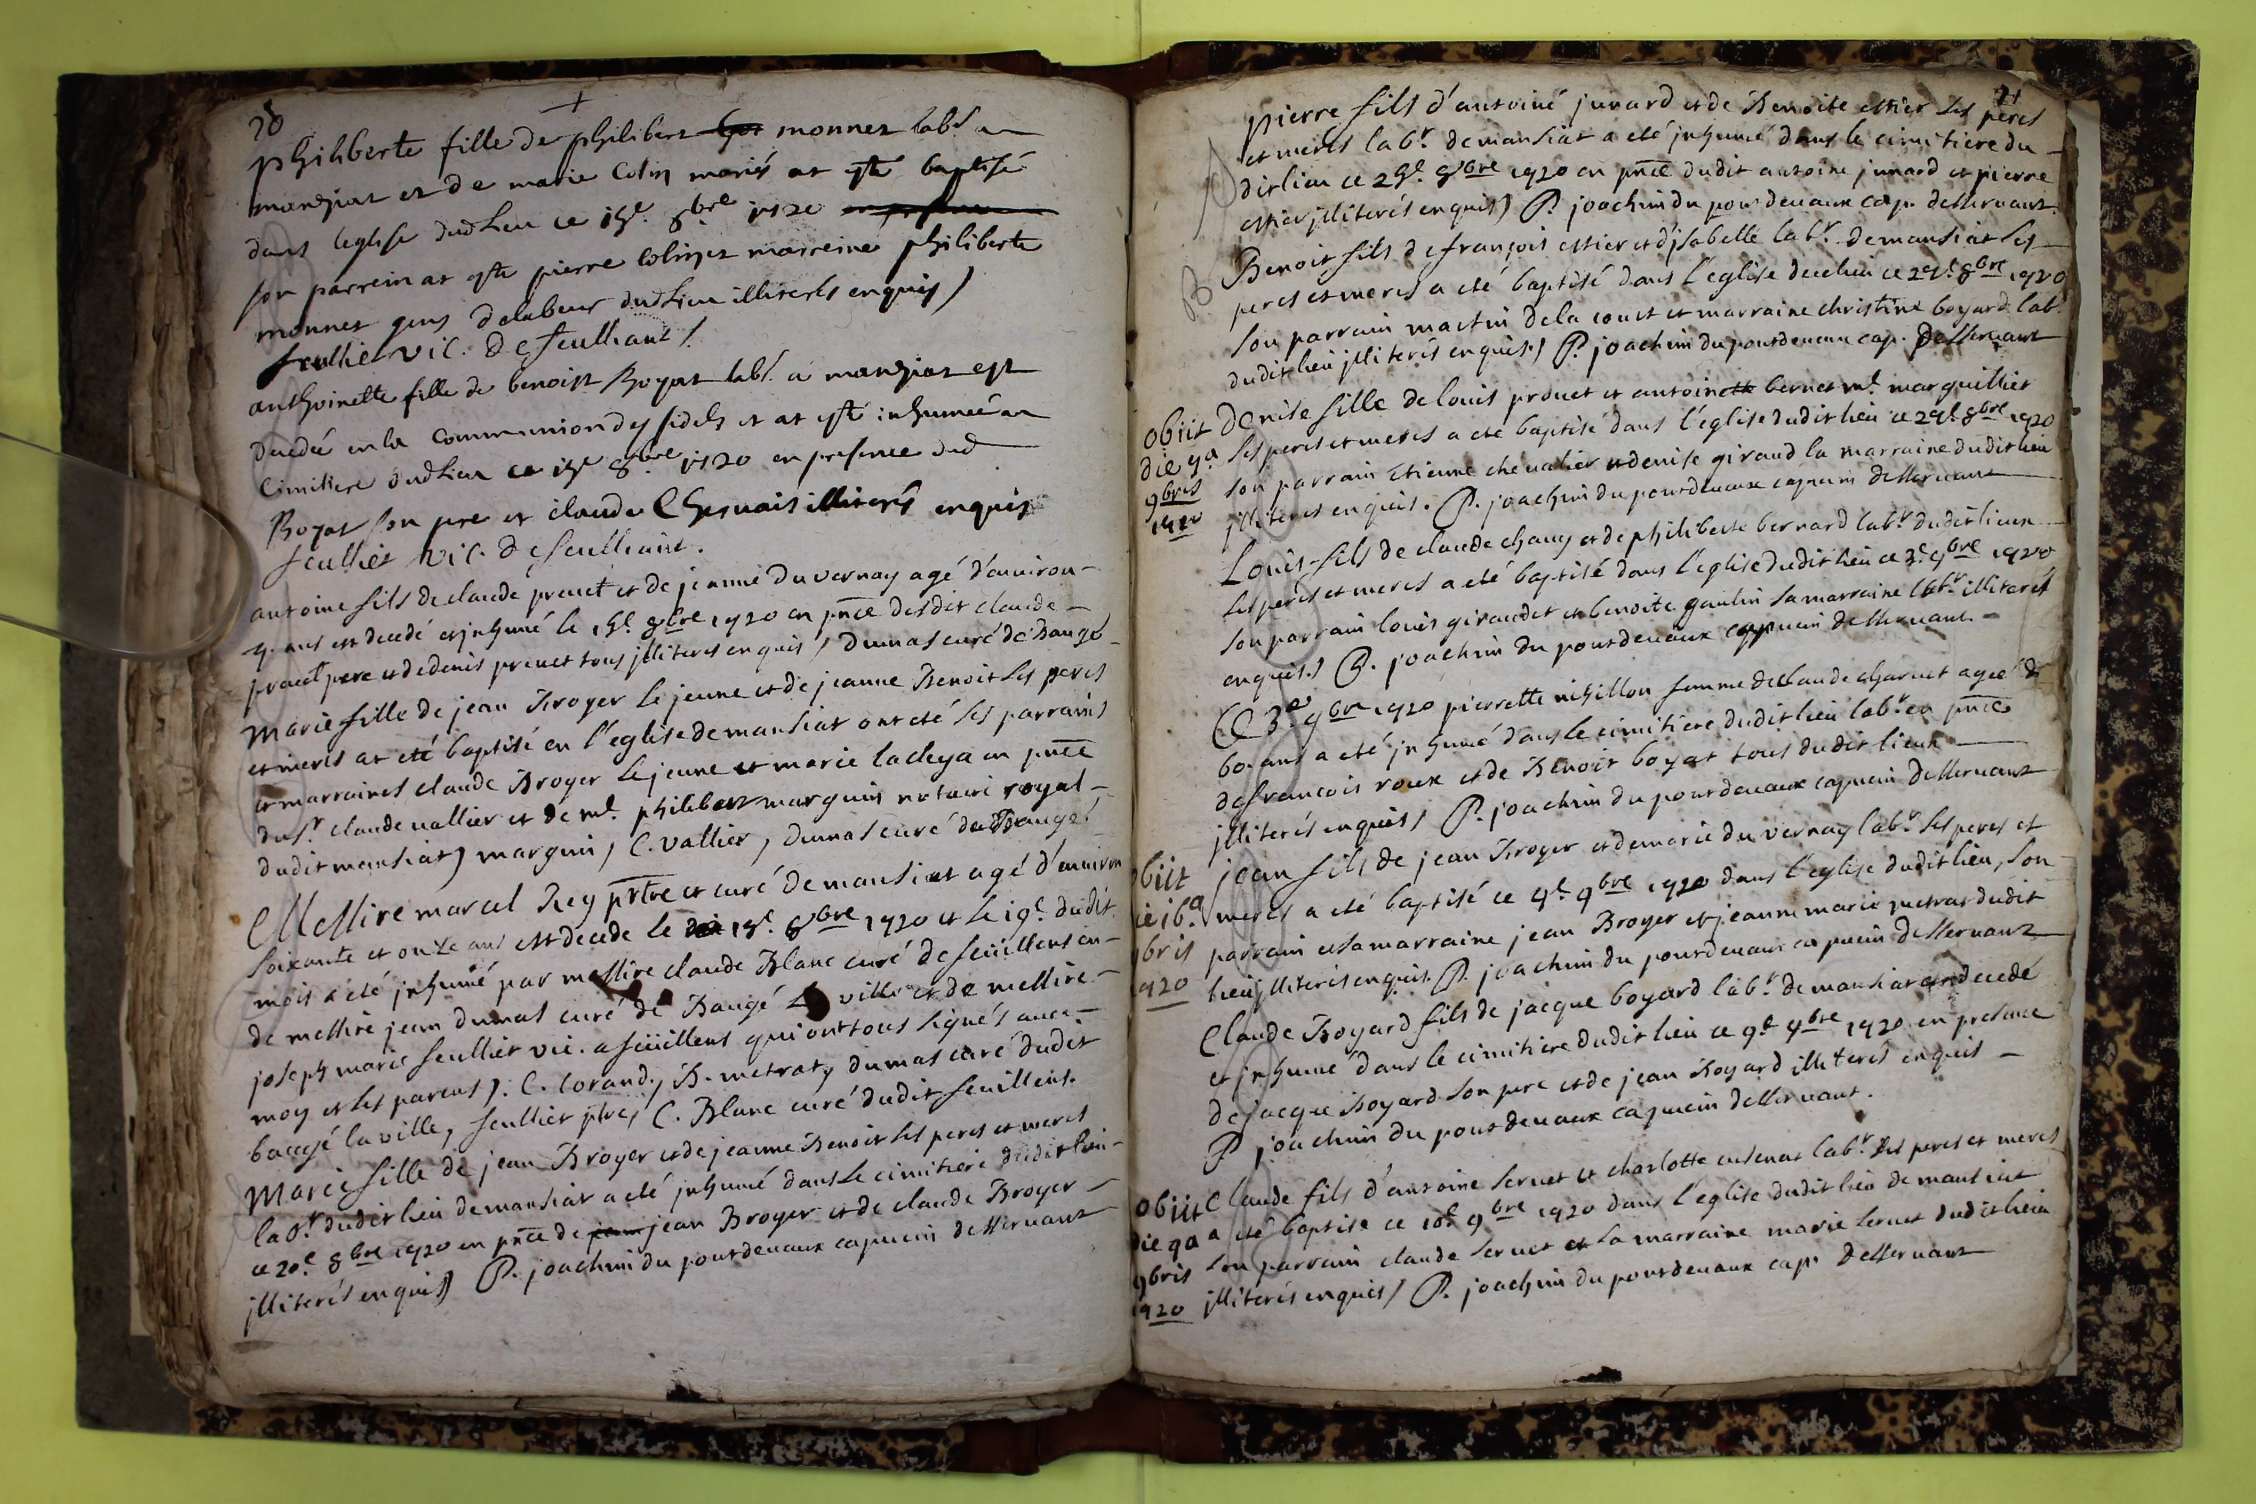 20
philiberte fille de philibert monnet lab.r a
manziat et de marie Colin mariés at esté baptisé
dans leglise dud lieu ce 15e. 8bre 1720
son parrein at esté pierre et marreine philiberte
monnet gens de labeur dud lieu illiterés enquis)
feullier vic. de feulliant /.
anthoinette fille de benoist Boyat lab.r a manziat est
decedée en la Communion des fidels et at esté inhumée au
Cimitiere dud lieu ce 8bre 1720 en presence dud
Boyat son pre et claude illiterés enquis
feullier vic. de feulliant.
antoine fils de claude prevet et de jeanne du vernay agé d'environ
9. ans est decedé et jnhumé le 8bre 1720 en pñce desdit claude
pere et de denis prevet tous jlliteres enquis / dumas curé de Baugé
Marie fille de jean Broyer le jeune et de jeanne Benoit ses peres
et meres at eté baptisé en l'eglise de mansiat ont eté ses parrains
et marraines claude Broyer le jeune et marie en pñce
du s.r claude vallier et de m.e philibert marguin notaire royal
dudit mansiat) marguin, C. vallier, dumas curé de Baugé
Messire marcel Rey prtre et curé de mansiat agé d'environ
soixante et onze ans est decede le 18e. 8bre 1720 et le 19e. dudit
mois a eté jnhumé par messire claude Blanc curé de feüillens en
de messire jean dumas curé de Baugé ville et de messire
joseph marie feullier vic. a feüillens qui ont tous signés avec
moy et les parens). C. Corand, B. metrat, dumas curé dudit
baugé la ville, feullier ptre, C. Blanc curé dudit feuillens.
Marie fille de jean Broyer et de jeanne Benoit ses peres et meres
lab.r dudit lieu de mansiat a eté jnhumé dans le cimitiere dudit lieu
ce 20.e 8bre 1720 en pñce de jean Broyer et de claude Broyer
jlliterés enquis) P. joachim du pourdevaux capucin desservant
21
pierre fils d'antoine junard et de Benoite essier ses peres
et meres lab.r de mansiat a eté jnhumé dans le cimitiere du
dit lieu ce 8bre 1720 en pñce dudit antoine junard et pierre
essier jlliterés enquis) P. joachim du pourdevaux cap. desservant.
B
Benoit fils de françois essier et d'jsabelle lab.r de mansiat ses
peres et meres a eté baptisé dans l'eglise dece lieu ce 8bre 1720
son parrain martin de la court et marraine christine boyard lab.r
dudit lieu jlliterés enquis.) P. joachim du pourdevaux cap. desservant
obiit
die 9a
9bris
1720
Denise fille de louis provet et antoinette bernet m.e marguillier
ses peres et meres a eté baptisé dans l'église dudit lieu ce 29e. 8bre 1720
son parrain Etienne chevalier et denise giraud la marraine dudit lieu
jlliteres enquis. P. joachim du pourdevaux capucin desservant
Louis fils de claude chany et de philiberte bernard lab.r dudit lieux
ses peres et meres a eté baptisé dans l'eglise dudit lieu ce 9bre 1720
son parrain louis giraudet et benoite gaulin sa marraine lab.r illiterés
enquis.) P. joachim du pourdevaux capucin desservant
Ce 3.e 9bre 1720 pierrette nisillon femme de claude charvet agée de
60. ans a eté jnhumé dans le cimitiere dudit lieu lab.r en pñce
de francois roux et de Benoit boyat tous dudit lieux
jlliterés enquis) P. joachim du pourdevaux capucin desservant
obiit
die 16.a
9bris
1720
jean fils de jean Broyer et de marie du vernay lab.r ses peres et
meres a eté baptisé ce 9.e 9bre 1720 dans l'eglise dudit lieu, son
parrain et sa marraine jean Broyer et jeanne marie metrat dudit
lieu jlliterés enquis. P. joachim du pourdevaux capucin desservant
Claude Boyard fils de jacque boyard lab.r de mansiat est decedé
et jnhumé dans le cimitiere dudit lieu ce 9.e 9bre 1720 en presence
de jacque Boyard son pere et de jean Boyard illiterés enquis
P. joachim du pourdevaux capucin desservant.
obiit
die 9a
9bris
1720
Claude fils d'antoine servet et charlotte lab.r ses peres et meres
a eté baptisé ce 10.e 9bre 1720 dans l'eglise dudit lieu de mansiat
son parrain claude servet et sa marraine marie servet dudit lieu
jlliterés enquis) P. joachim du pourdevaux cap. desservant